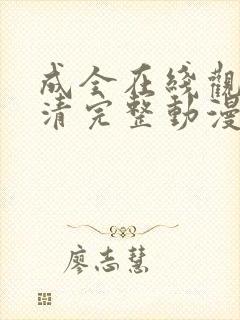 成全在綫觀
清完整動漫
廖志慧